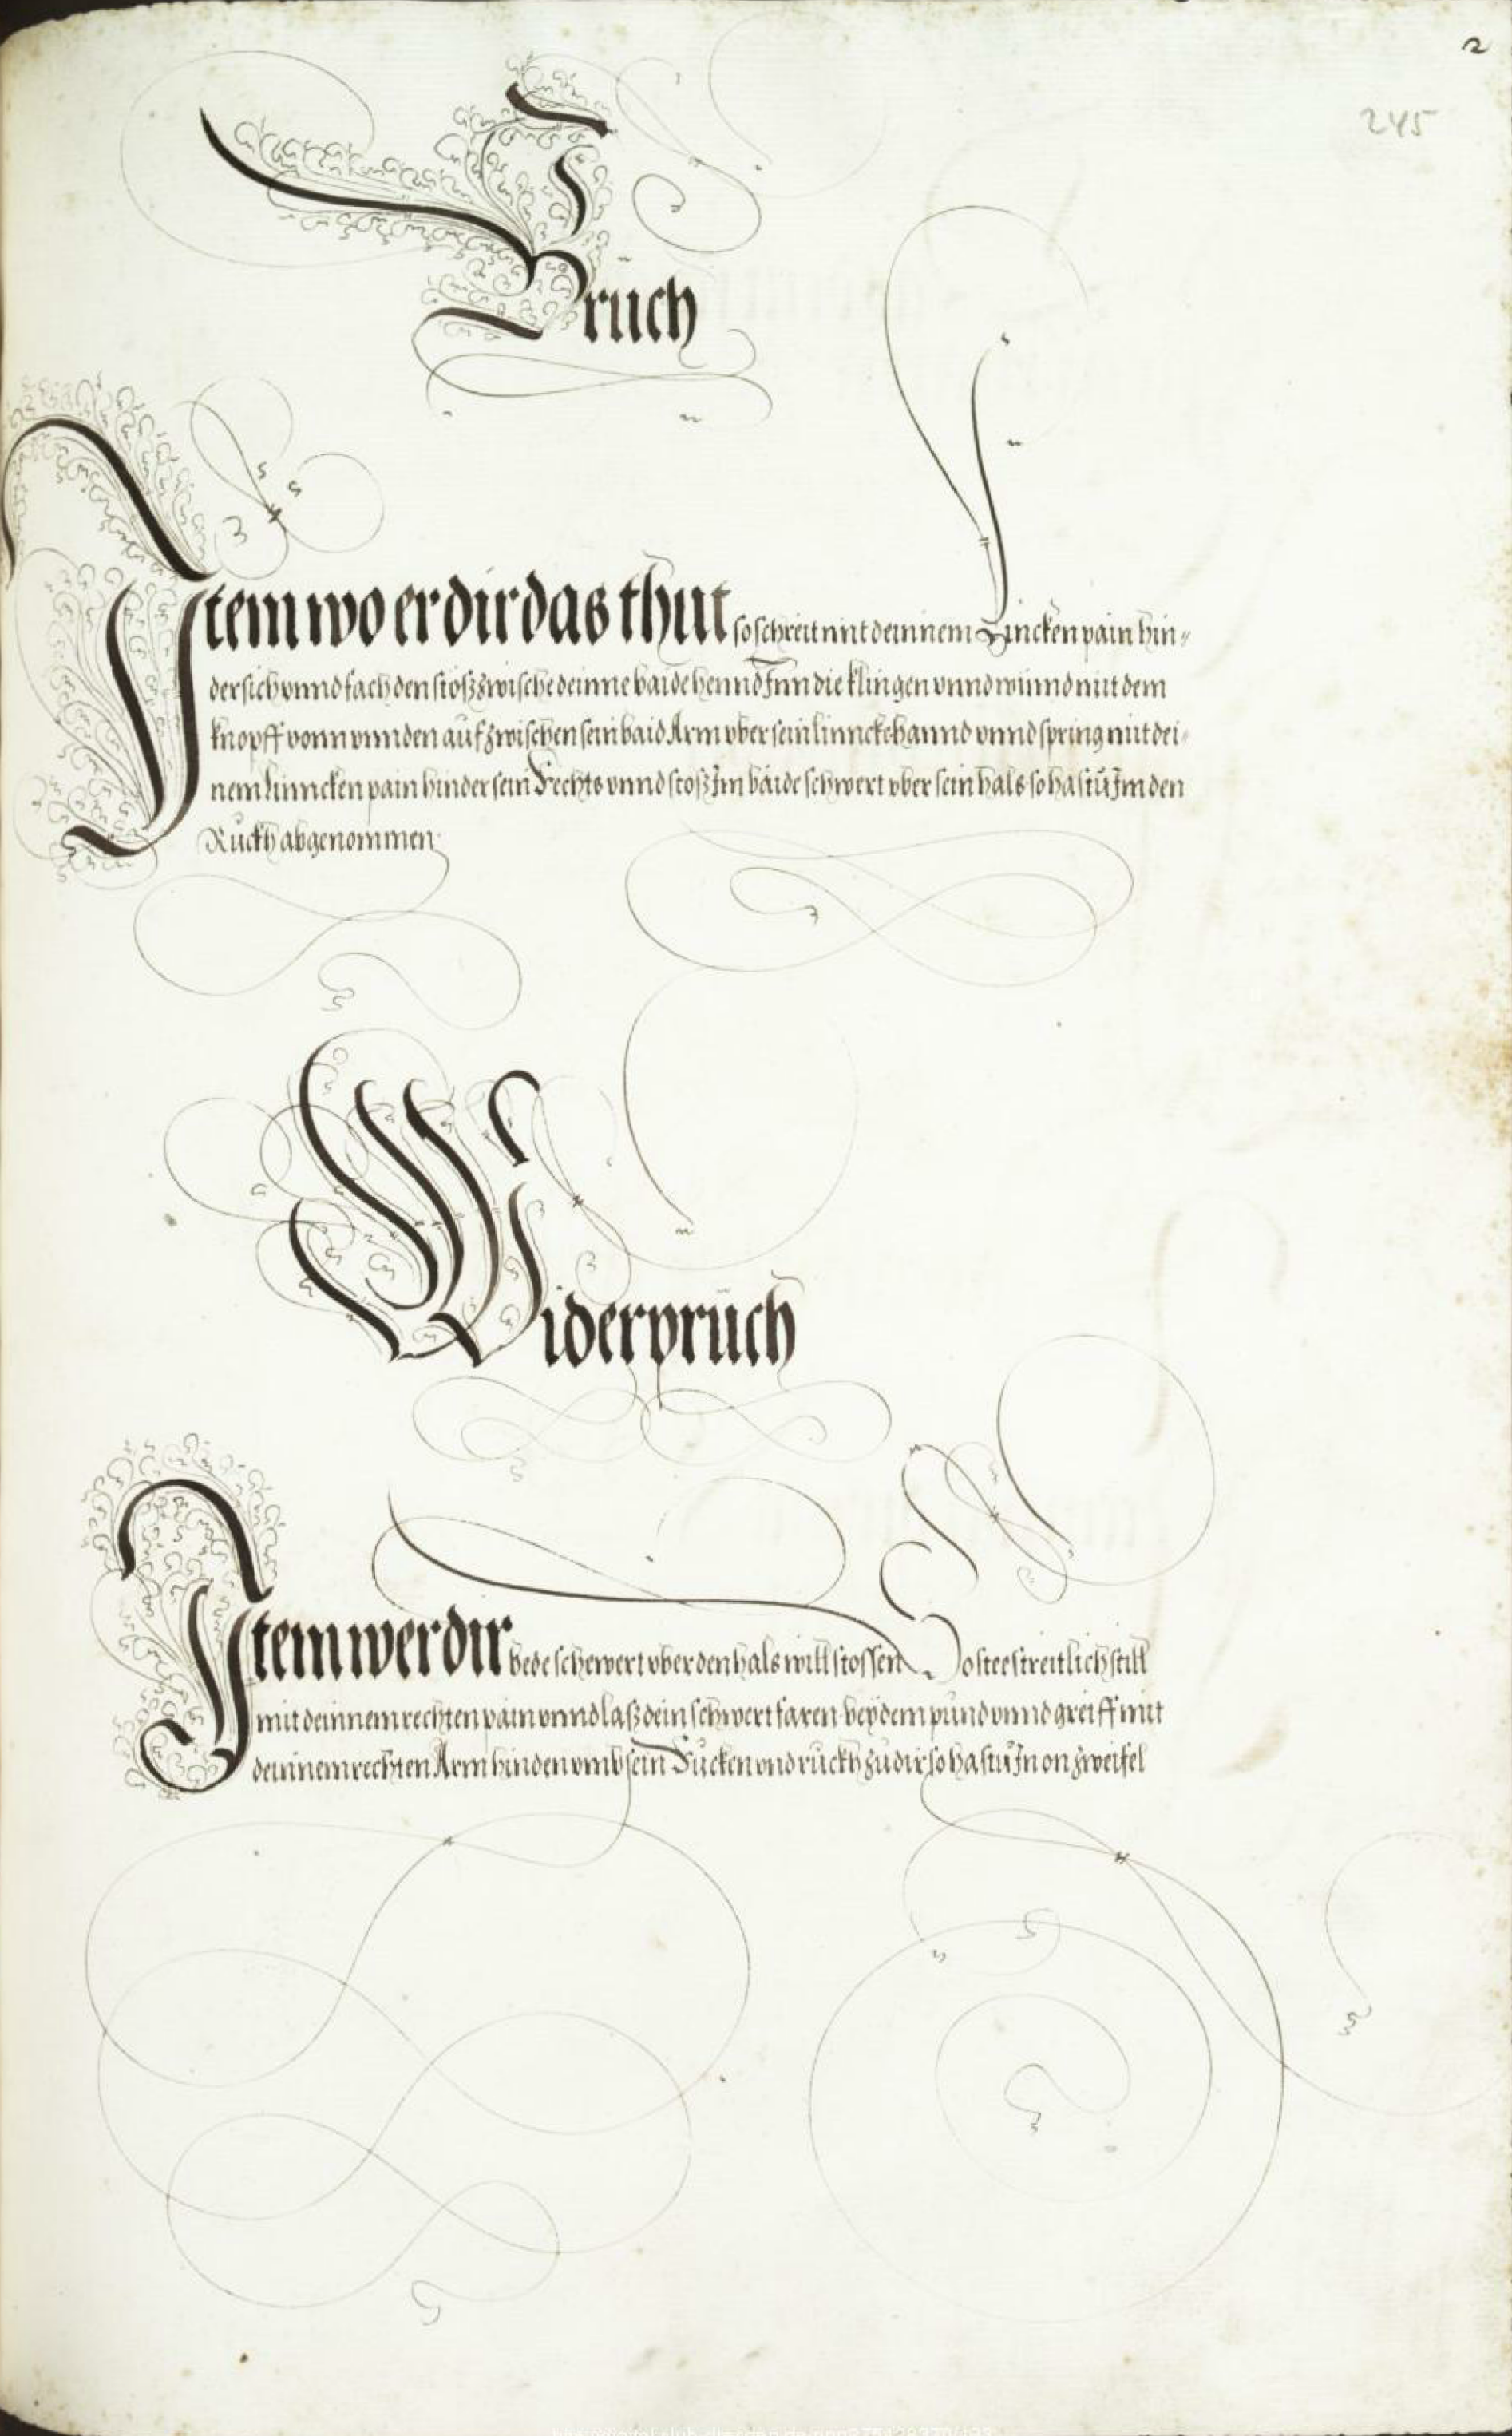 2
245
Bruch
Item wo er dir das thut so schreit mit deinnem Lincken pain hin=
der sich vnnd fach den stosz zwische deinne baide hennd Inn die klingen vnnd winnd mit dem
knopff vonn vnnden auf zwischen sein baid Arm vber sein linncke hannd vnnd spring mit dei=
nem linncken pain hinder sein Rechts vnnd stosz Im baide schwert vber sein hals so hastu Im den
Ruckh abgenommen
Widerpruch
Item wer dir bede schewert vber den hals will stossen So stee streitlich still
mit deinnem rechten pain vnnd lasz dein schwert faren bey dem pund vnnd greiff mit
deinnem rechten Arm hinden vmb sein Rucken vnd ruckh zu dir so hastu In on zweifel